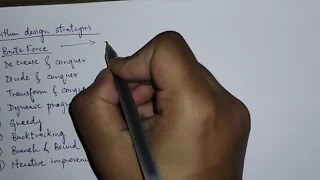 design strategies
Brute Force
Decrease & conquer
Divide & conquer
Transform & conquer
Dynamic
Greedy
Backtracking
Branch & Bound
Iterative